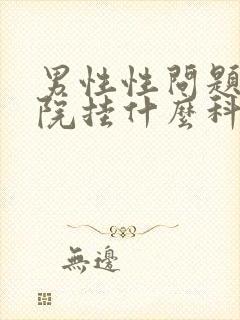 男性性問題
院挂什麼科
無邊